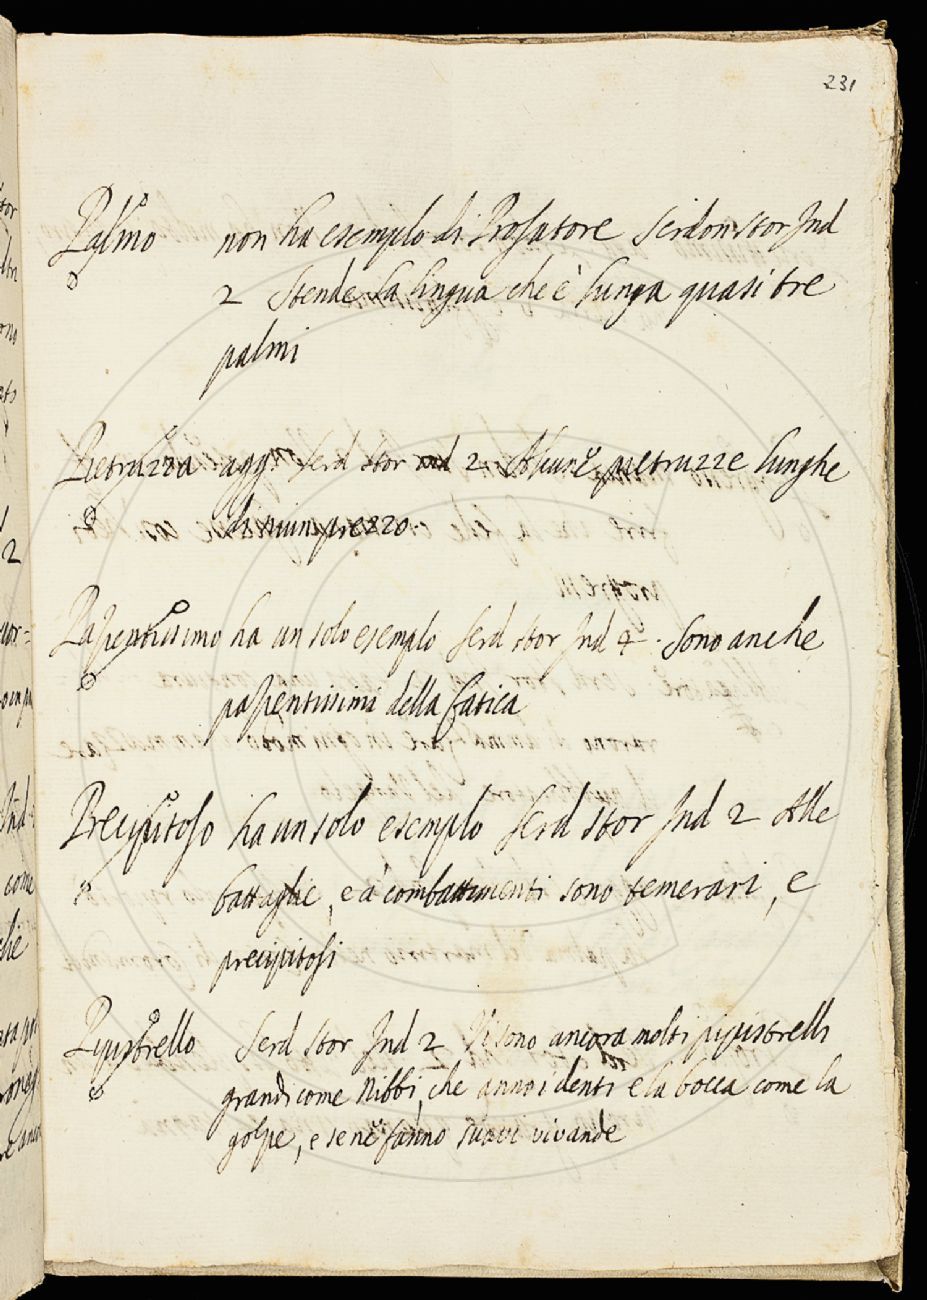 231
Palmo non ha esemplo di Prosatore Serdon stor Ind
2 Stende la lingua che è lunga quasi tre
palmi
Pietruzza agg. Serd stor 2 pietruzze lunghe
di niun prezzo
Pazientissimo ha un solo esemplo Serd stor Ind 4. Sono anche
pazientissimi della fatica
Precipitoso ha un solo esemplo Serd stor Ind 2 Alle
battaglie, e a' combattimenti sono temerari, e
precipitosi
Pipistrello Serd stor Ind 2 Vi sono ancora molti pipistrelli
grandi come Nibbi, che anno i denti e la bocca come la
golpe, e se ne fanno suavi vivande